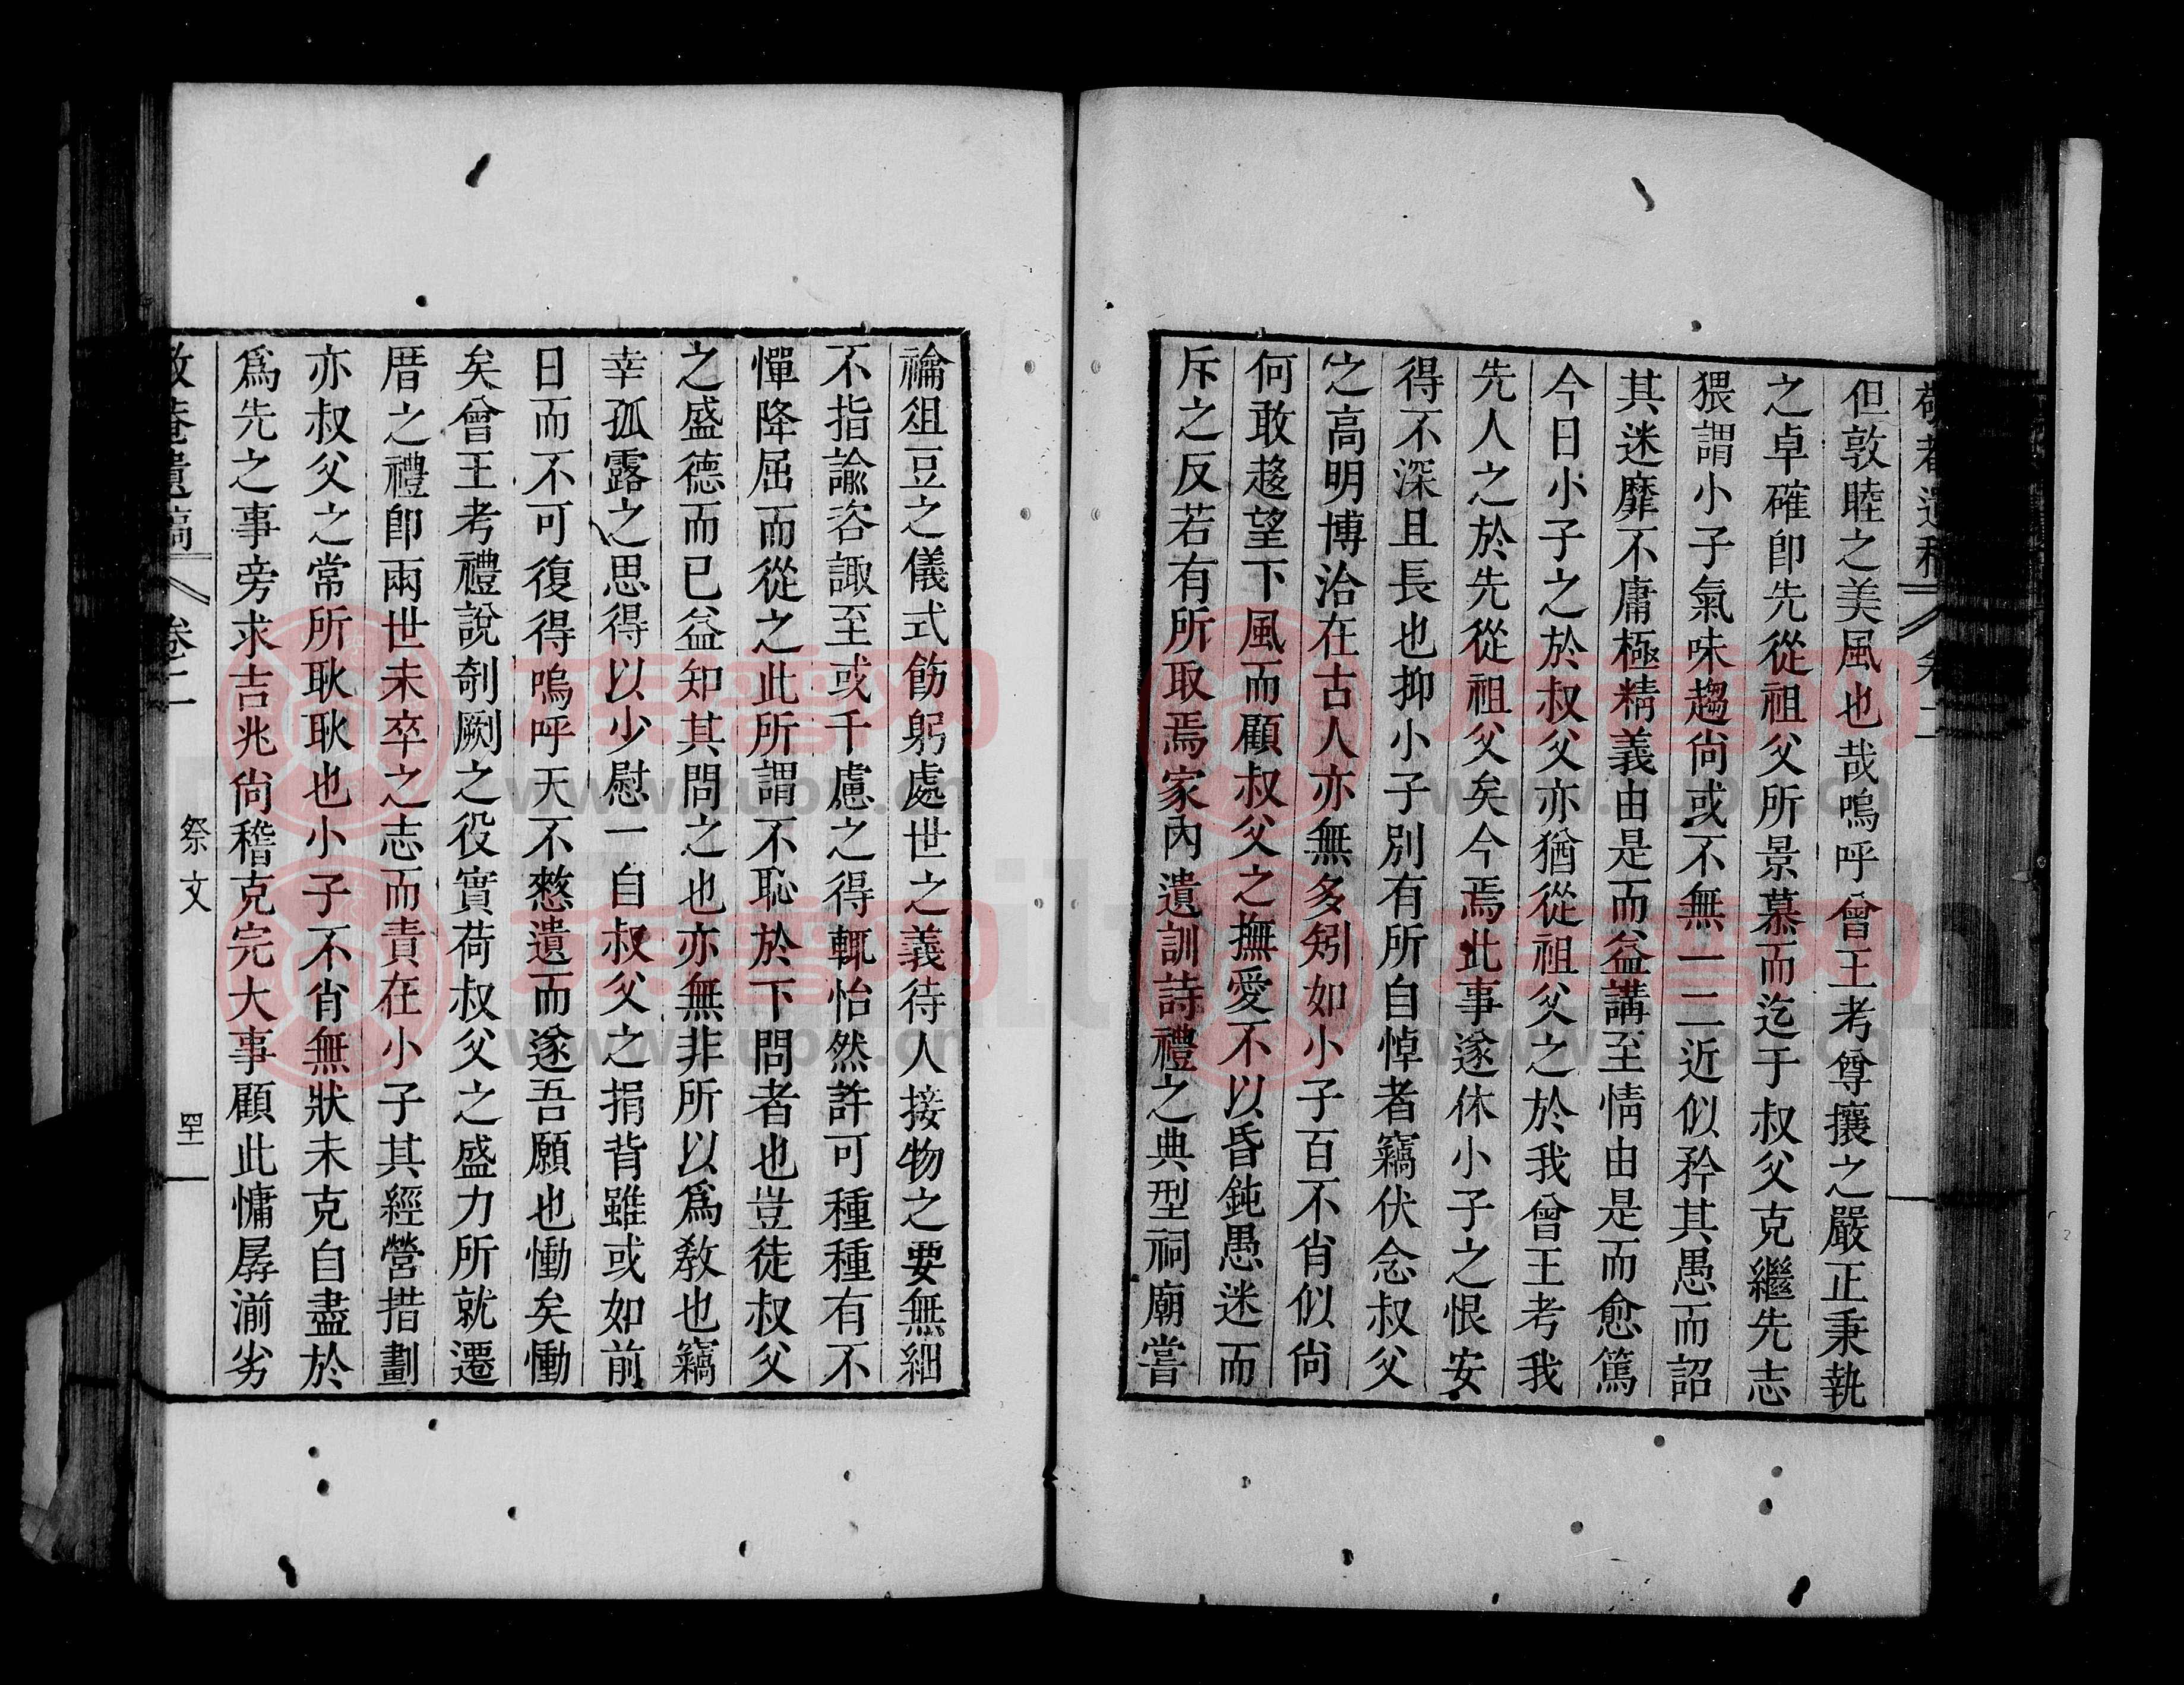 但敦睦之美風也哉嗚呼曾王考尊攘之嚴正秉執
之卓確卽先從祖父所景慕而迄于叔父克繼先志
猥謂小子氣味趨尙或不無一二近似矜其愚而詔
其迷靡不庸極精義由是而益講至情由是而愈篤
今日小子之於叔父亦猶從祖父之於我曾王考我
先人之於先從祖父矣今焉此事遂休小子之恨安
得不深且長也抑小子別有所自悼者竊伏念叔父
之高明博洽在古人亦無多矧如小子百不肖似尙
何敢趍望下風而顧叔父之撫愛不以昏鈍愚迷而
斥之反若有所取焉家內遺訓詩禮之典型祠廟嘗
禴俎豆之儀式飭躬處世之義待人接物之要無細
不指諭咨諏至或千慮之得輒怡然許可種種有不
憚降屈而從之此所謂不恥於下問者也豈徒叔父
之盛德而已益知其問之也亦無非所以爲敎也竊
幸孤露之思得以少慰一自叔父之捐背雖或如前
日而不可復得嗚呼天不憗遺而遂吾願也慟矣慟
矣曾王考禮說剞劂之役實荷叔父之盛力所就遷
厝之禮卽兩世未卒之志而責在小子其經營措劃
亦叔父之常所耿耿也小子不肖無狀未克自盡於
爲先之事旁求吉兆尙稽克完大事顧此慵孱湔劣
遺稿 卷二 祭文 四十一
族譜网
www.zupu.cn
族譜网
www.zupu.cn
族譜网
www.zupu.cn
族譜网
www.zupu.cn